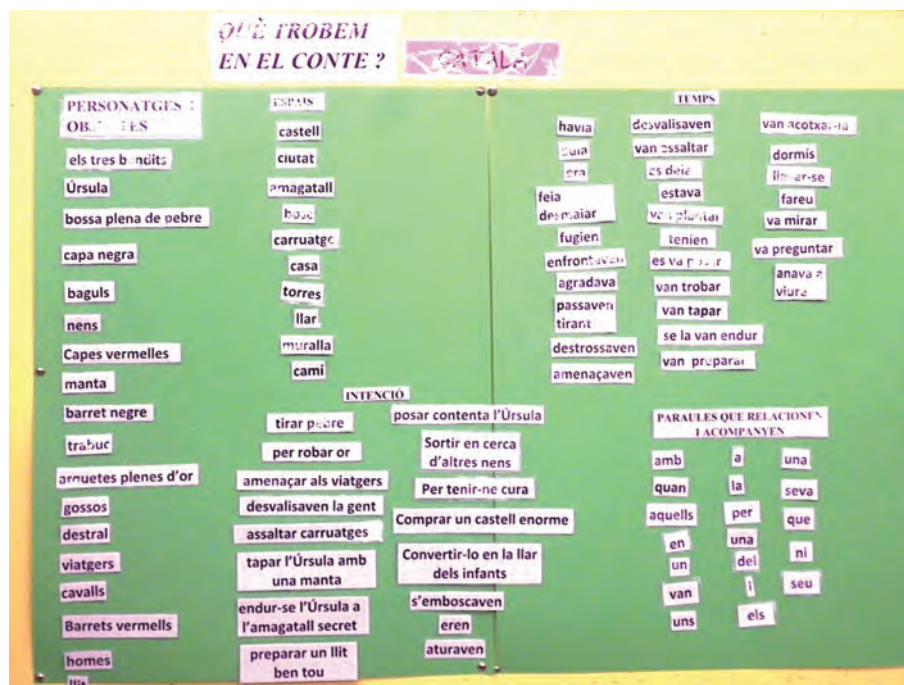 QUÈ TROBEM
EN EL CONTE ?
CATALÀ
PERSONATGES I
OBJECTES
els tres bandits
Úrsula
bossa plena de pebre
capa negra
baguls
nens
Capes vermelles
manta
barret negre
trabuc
arquetes plenes d'or
gossos
destral
viatgers
cavalls
Barrets vermells
homes
llit
ESPAIS
castell
ciutat
amagatall
bosc
carruatge
casa
torres
llar
muralla
camí
INTENCIÓ
tirar pebre
per robar or
amenaçar als viatgers
desvalisaven la gent
assaltar carruatges
tapar l'Úrsula amb
una manta
endur-se l'Úrsula a
l'amagatall secret
preparar un llit
ben tou
posar contenta l'Úrsula
Sortir en cerca
d'altres nens
Per tenir-ne cura
Comprar un castell enorme
Convertir-lo en la llar
dels infants
s'emboscaven
eren
aturaven
TEMPS
havia
duia
era
feia
desmaiar
fugien
enfrontaven
agradava
passaven
tirant
destrossaven
amenaçaven
desvalisaven
van assaltar
es deia
estava
van plantar
tenien
es va posar
van trobar
van tapar
se la van endur
van preparar
van acotxar-la
dormís
llevar-se
fareu
va mirar
va preguntar
anava a
viure
PARAULES QUE RELACIONEN
I ACOMPANYEN
amb
quan
aquells
en
un
van
uns
a
la
per
una
del
i
els
una
seva
que
ni
seu